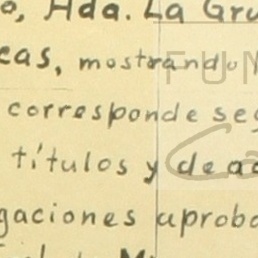 o, Hda. La Gru
cas, mostrando
corresponde seg
títulos y de ac
gaciones aproba